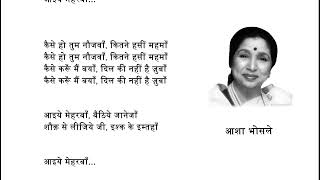 आइये मेहरबाँ...
कैसे हो तुम नौजवाँ, कितने हसीं महमाँ
कैसे हो तुम नौजवाँ, कितने हसीं महमाँ
कैसे करूँ मैं बयाँ, दिल की नहीं है ज़ुबाँ
कैसे करूँ मैं बयाँ, दिल की नहीं है ज़ुबाँ
आइये मेहरबाँ, बैठिये जानेजाँ
शौक़ से लीजिये जी, इश्क़ के इम्तहाँ
आइये मेहरबाँ...
आशा भोसले